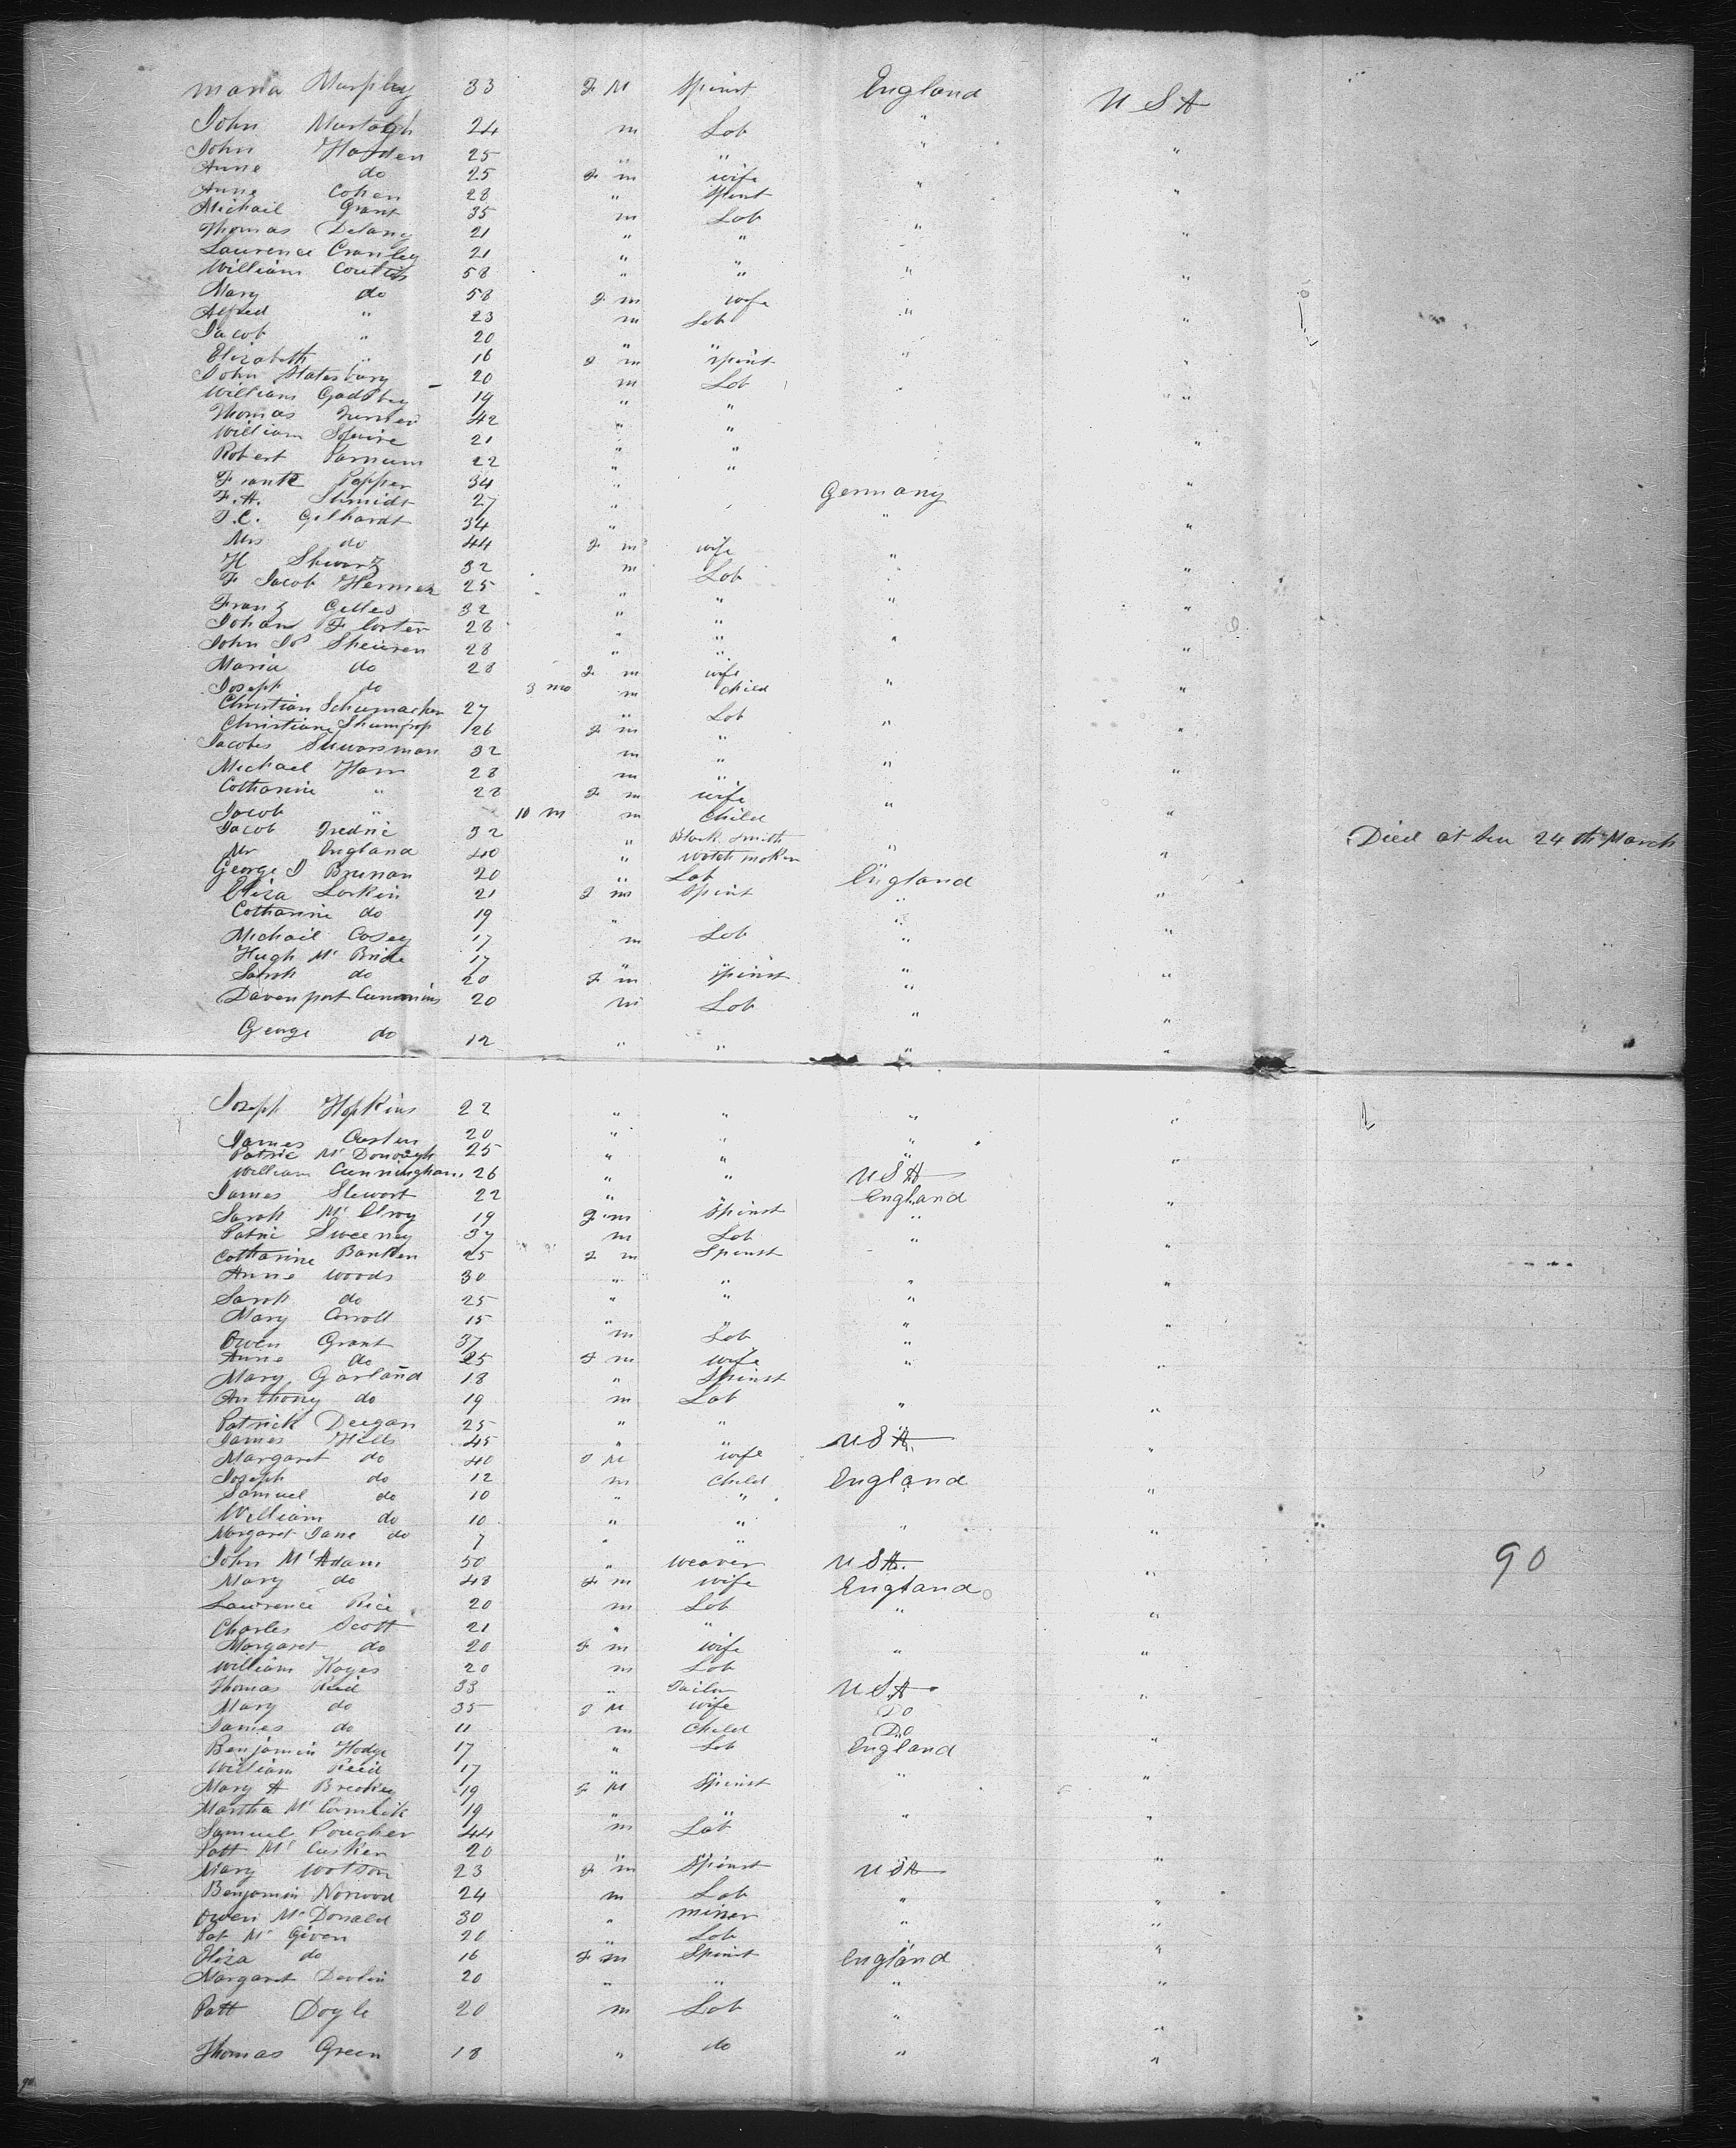 Maria Murphy 33 F M Spinst England U S A
John Murtagh 24 m Lab "
John Hayden 25 " " " "
Anne do 25 F m wife
Anne Cohen 28 " Spinst " "
Michail Grant 35 m Lab
Thomas Delany 21 " " " "
Laurence Cranley 21 " "
William Coutts 58 " " " "
Mary do 58 F m wife
Alfred " 23 m Lab " "
Jacob " 20 " "
Elizabeth " 16 F m Spinst " "
John Statesbury 20 m Lab
William Gadsbey 19 " " " "
Thomas 42 " "
William Squire 21 " " "
Robert Parnum 22 " "
Frank Popper 34 " Germany "
F. A. Shmidt 27 " "
J. C. Gelhardt 34 " "
Mrs do 44 F m wife "
H Shwartz 32 m Lab "
F Jacob Hermes 25 " " "
Franz Gelles 32 " " "
Johan F Corter 28 " " "
John Jos Sheuren 28 " " "
Maria do 28 F m wife
Joseph do 3 mo m child " "
Christian Schumacher 27 " Lab
Christiane 26 F m " " "
Jacobes Shwarsman 32 m "
Michael Ham 28 m " " "
Catharine " 28 F m wife
Jacob " 10 m m child " "
Jacob Fredric 32 " Black Smith Died at Sea 24th March
Mr England 40 " watch maker " "
George J Brennan 20 " Lab England
Eliza Larkin 21 F m Spinst " "
Catharine do 19 " "
Michail Casey 17 m Lab " "
Hugh Mc Bride 17 "
Sarah do 20 F m Spinst " "
Davenport Cummins 20 m Lab "
George do 12 " " " "
Joseph Hopkins 22 " " " "
James 20 " " "
Patric Mc Donough 25 " " " "
William Cunningham 26 " " U S A
James Stewart 22 " " England "
Sarah Mc Elroy 19 F m Spinst "
Patric Sweeney 37 m Lab " "
Catharine Banken 25 F m Spinst
Anne Woods 30 " " " "
Sarah do 25 " " "
Mary Carroll 15 " " " "
Owen Grant 37 m Lab "
Anne do 25 F m wife " "
Mary Garland 18 " Spinst
Anthony do 19 m Lab " "
Patrick Deegan 25 " "
James Hills 45 " " U S A "
Margaret do 40 F M wife
Joseph do 12 m Child England "
Samuel do 10 " "
William do 10 " " " "
Margaret Jane do 7 " "
John Mc Adam 50 " weaver U S A 90
Mary do 48 F m wife England "
Lawrence Rice 20 m Lab " "
Charles Scott 21 " "
Margaret do 20 F m wife " "
William Hayes 20 m Lab
Thomas Reid 33 " Tailor U S A "
Mary do 35 F M wife Do
James do 11 m Child Do
Benjamin Hodge 17 " Lab England "
William Reid 17 " "
Mary A 19 F M Spinst "
Martha Mc Cormick 19 " " "
Samuel Poucher 44 m Lab
Patt Mc Cusker 20 " " "
Mary Watson 23 F m Spinst U S A
Benjamin Norwood 24 m Lab " "
Owen Mc Donald 30 " miner " "
Pat Mc Given 20 " Lab " "
Eliza do 16 F m Spinst England
Margaret Devlin 20 " " " "
Patt Doyle 20 m Lab " "
Thomas Green 18 " do " "